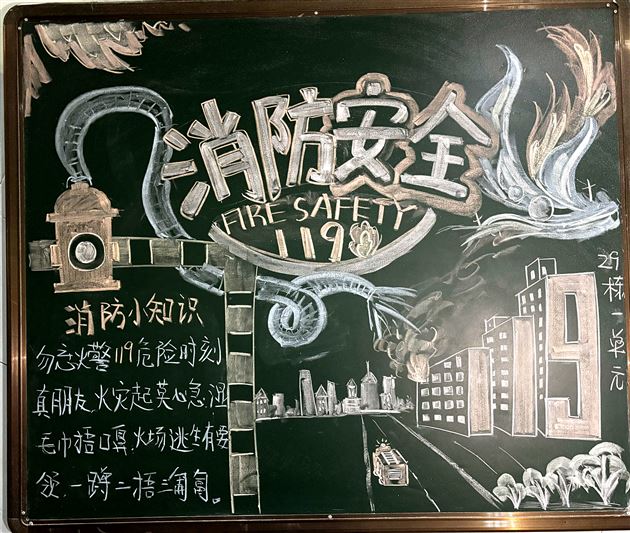 消防安全
FIRE SAFETY
119
消防小知识
勿忘火警119危险时刻
真朋友.火灾起莫心急.湿
毛巾捂口鼻.火场逃生有要
领.一蹲二捂三
119
29栋一单元